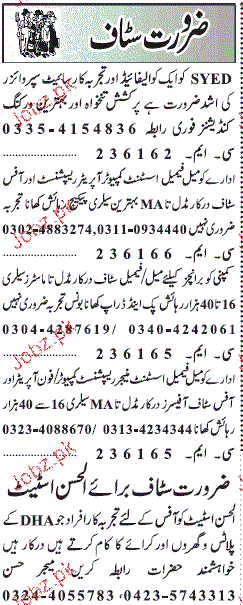 ضرورت سٹاف
SYED کو ایک کوالیفائیڈ اور تجربہ کار سائیٹ سپروائزر
کی اشد ضرورت ہے پرکشش تنخواہ اور بہترین ورکنگ
کنڈیشنز فوری رابطہ 0335-4154836
سی۔ ایم۔ 236162
ادارے کو میل فیمیل اسسٹنٹ کمپیوٹر آپریٹر ریسپشنسٹ اور آفس
سٹاف درکار مڈل تا MA بہترین سیلری پیکیج رہائش کھانا تجربہ
ضروری نہیں 0302-4883274,0311-0934440
سی۔ ایم۔ 236166
کمپنی کو برانچز کیلئے میل/ فیمیل سٹاف درکار مڈل تا ماسٹرز سیلری
16 تا 40 ہزار رہائش پک اینڈ ڈراپ کھانا بونس تجربہ ضروری نہیں
0304-4287619/ 0340-4242061
سی۔ ایم۔ 236165
ادارے کو میل فیمیل اسسٹنٹ منیجر ریسپشنسٹ کمپیوٹر/ فون آپریٹر اور
آفس سٹاف آفیسرز درکار مڈل تا MA سیلری 16 سے 40 ہزار
رہائش کھانا 0323-4088670/ 0313-4234344
سی۔ ایم۔ 236165
ضرورت سٹاف برائے الحسن اسٹیٹ
الحسن اسٹیٹ کو آفس کے لئے تجربہ کار افراد جو DHA کے
پلاٹس و گھروں اور کرائے کا کام کرتے ہیں درکار ہیں
خواہشمند حضرات رابطہ کریں۔ میجر حسن
0324-4055783, 0423-5743313